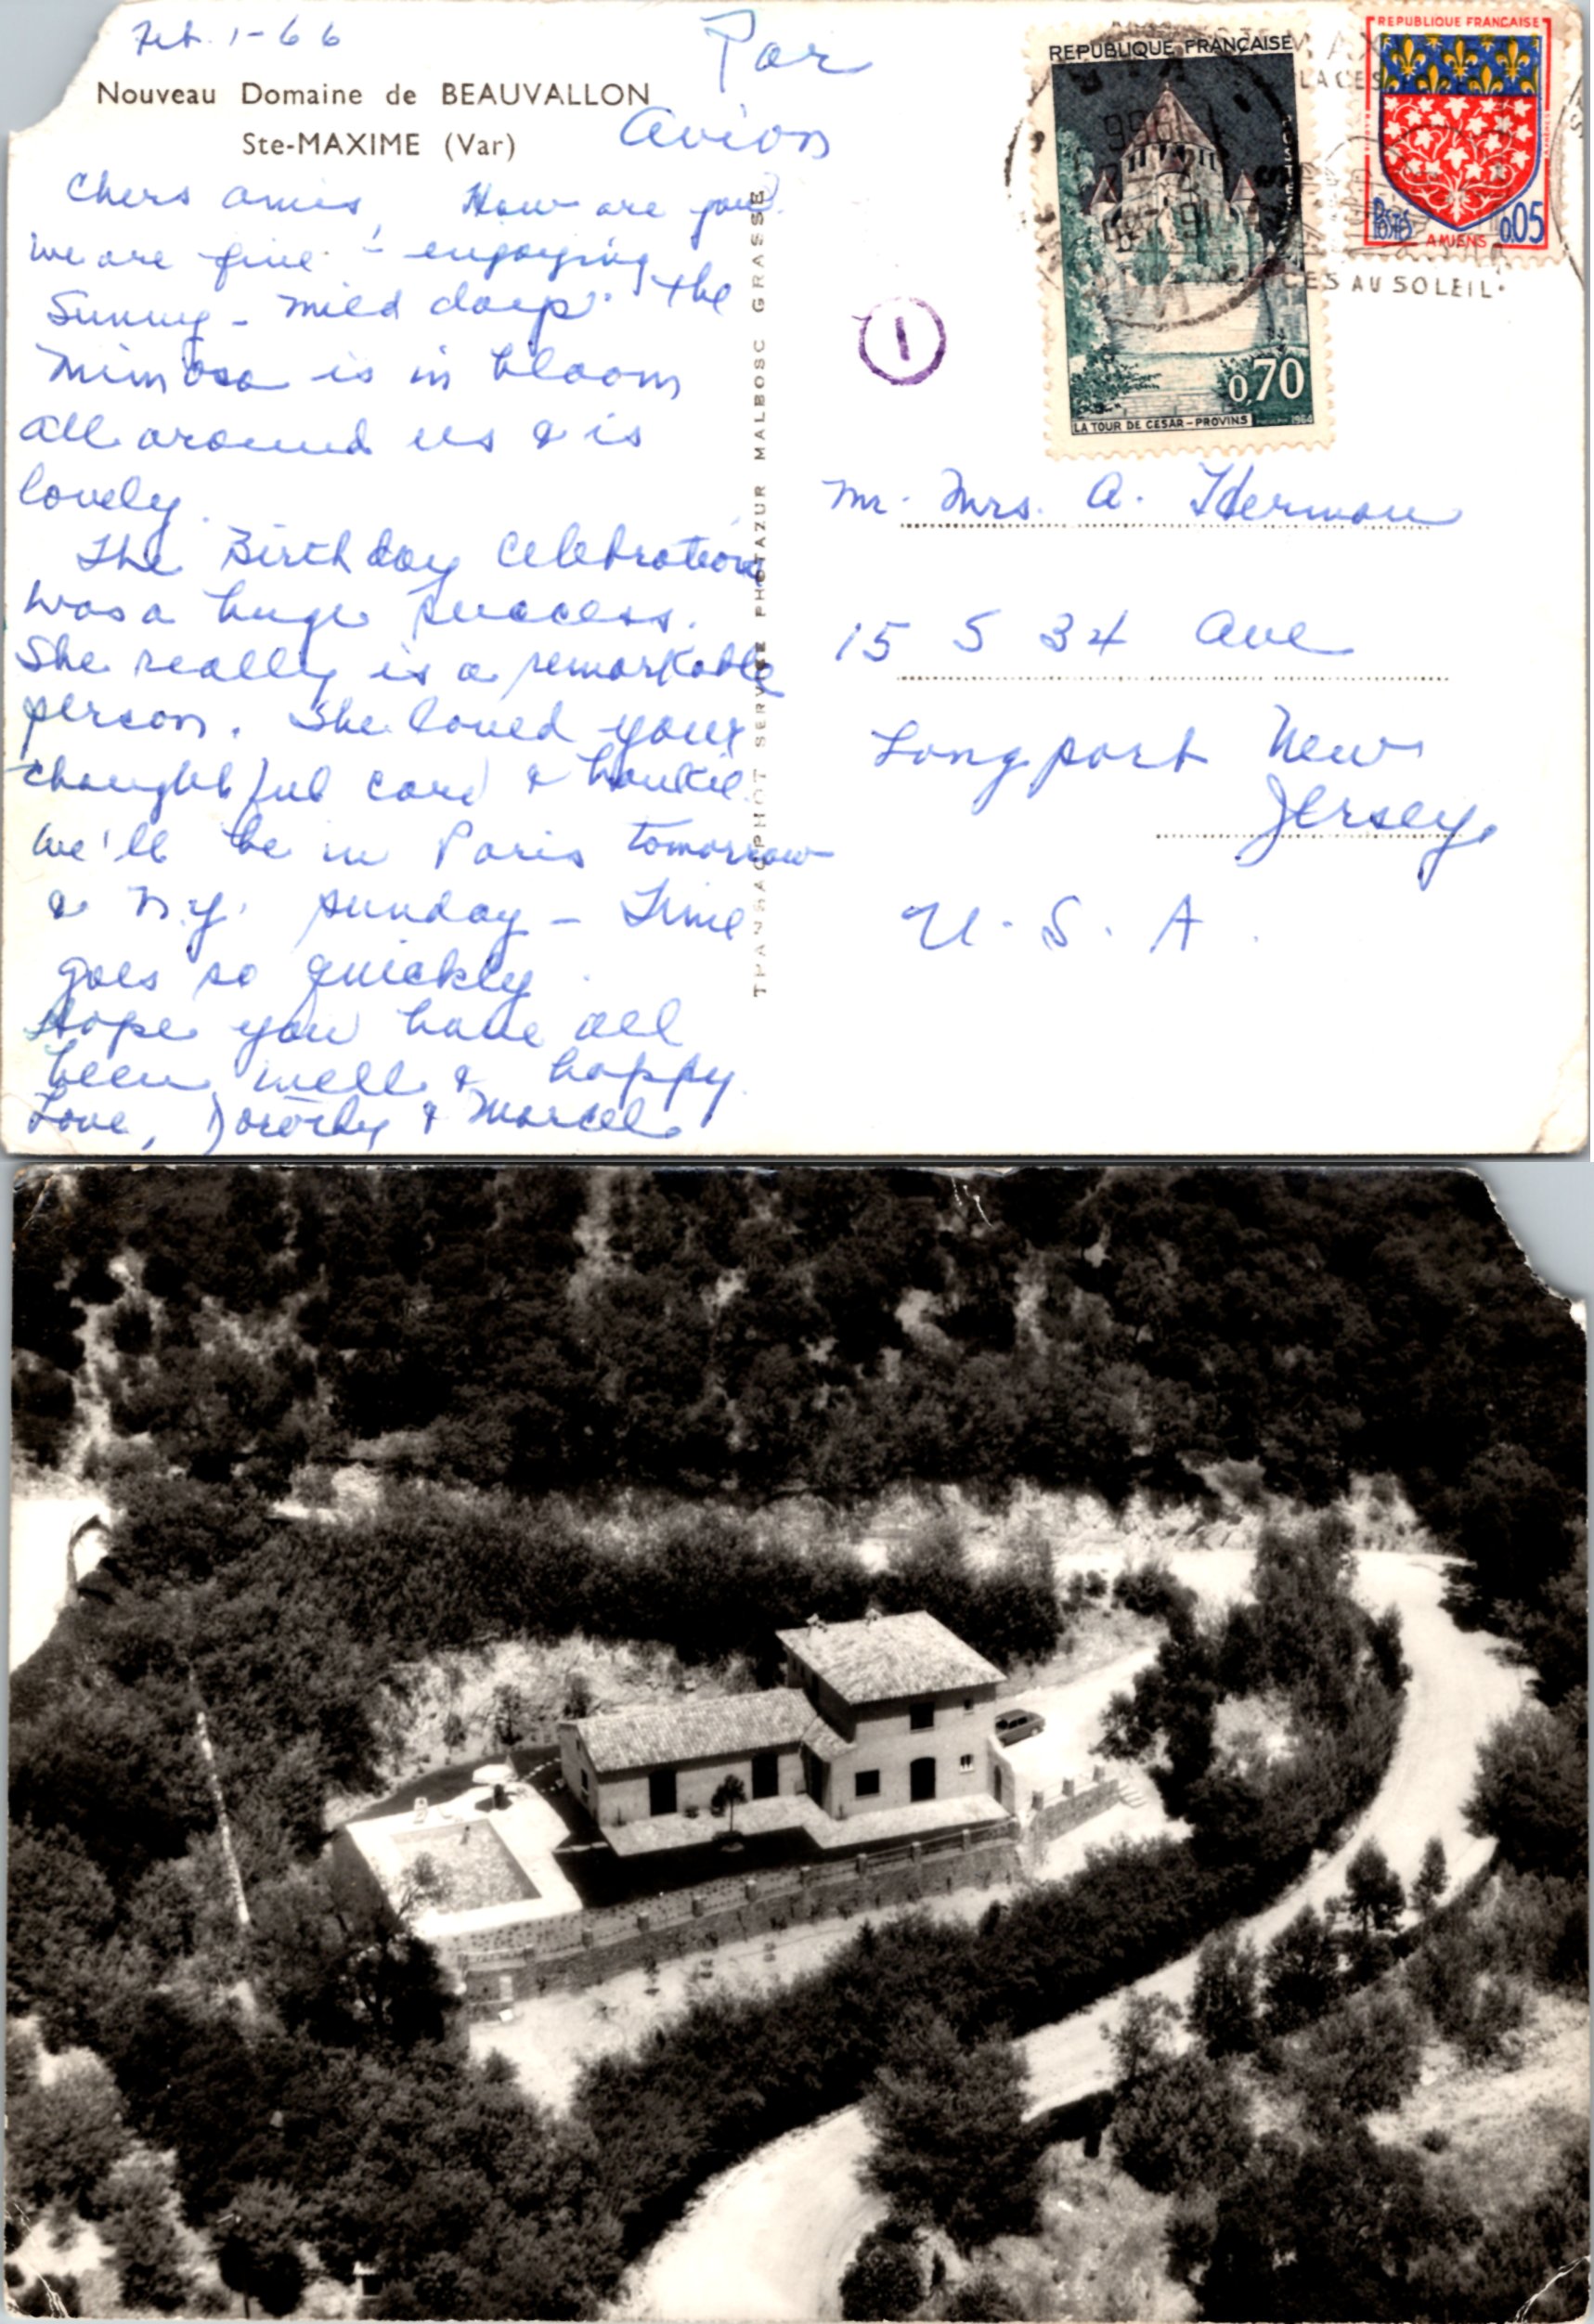 Feb. 1-66
Par
Avion
Nouveau Domaine de BEAUVALLON
Ste-MAXIME (Var)
Chers amis, How are you?
We are fine - enjoying the
Sunny - mild days. The
Mimosa is in bloom
all around us & is
lovely.
The Birthday Celebration
was a huge success.
She really is a remarkable
person. She loved your
thoughtful card & hankie.
We'll be in Paris tomorrow
& N.Y. Sunday - Time
goes so quickly.
Hope you have all
been well & happy.
Love, Dorothy & Marcel
TRANSACPHOT SERVICE PHOTAZUR MALBOSC GRASSE
1
REPUBLIQUE FRANÇAISE
0,70
LA TOUR DE CESAR - PROVINS
REPUBLIQUE FRANÇAISE
POSTES
0,05
AMIENS
AU SOLEIL
Mr. Mrs. A. Herman
15 S 34 Ave
Longport New
Jersey,
U. S. A.